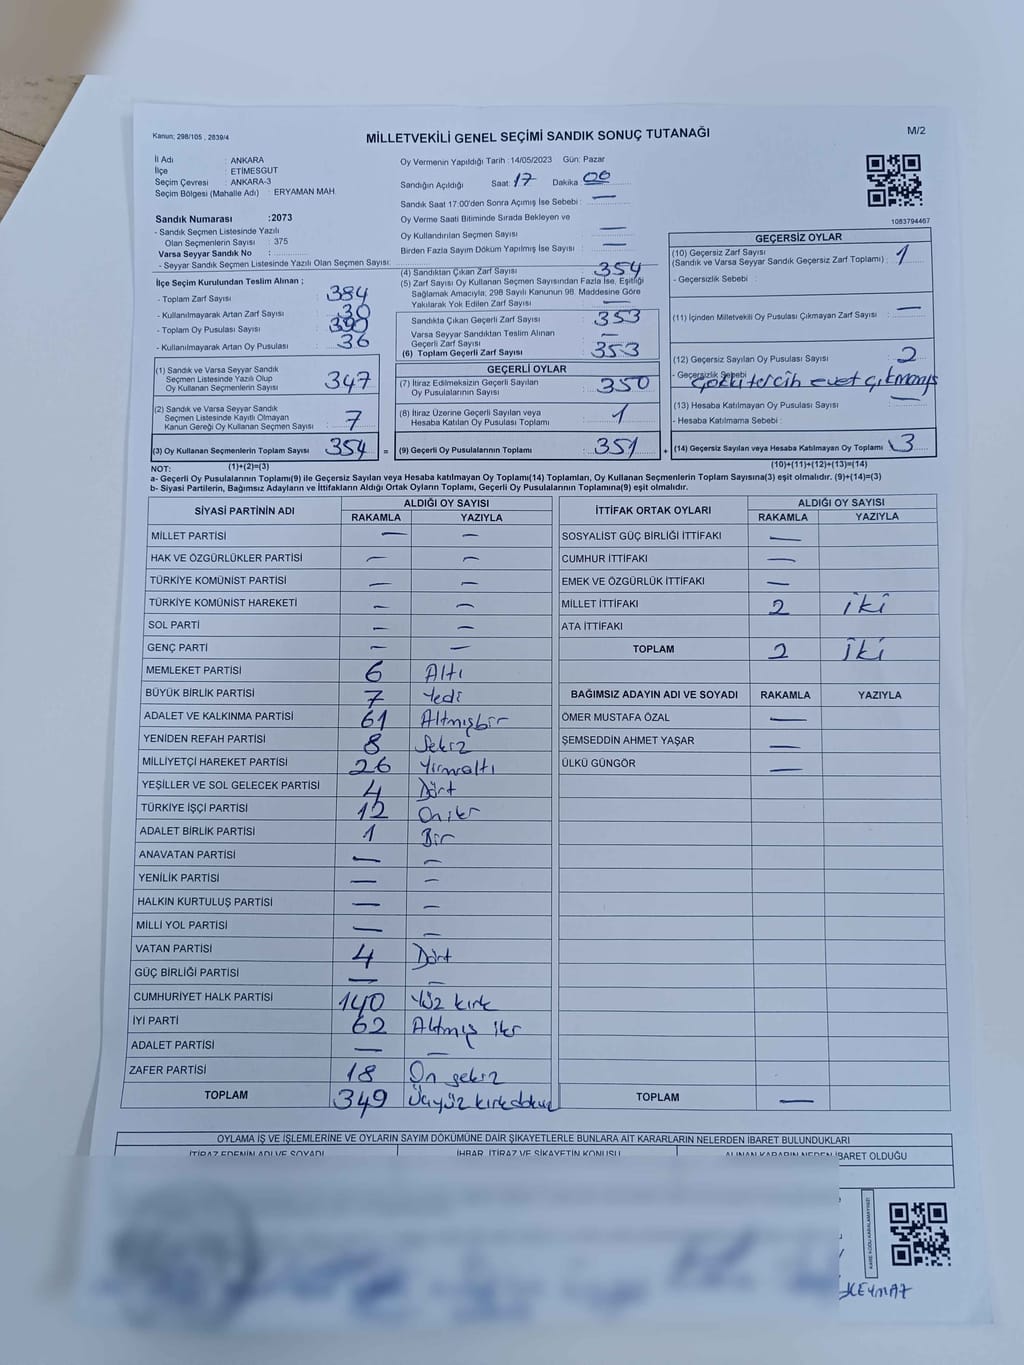 Kanun; 298/105 , 2839/4
MİLLETVEKİLİ GENEL SEÇİMİ SANDIK SONUÇ TUTANAĞI
M/2
İl Adı : ANKARA
İlçe : ETİMESGUT
Seçim Çevresi : ANKARA-3
Seçim Bölgesi (Mahalle Adı) : ERYAMAN MAH.
Sandık Numarası :2073
- Sandık Seçmen Listesinde Yazılı
Olan Seçmenlerin Sayısı : 375
Varsa Seyyar Sandık No :
- Seyyar Sandık Seçmen Listesinde Yazılı Olan Seçmen Sayısı:
Oy Vermenin Yapıldığı Tarih :14/05/2023 Gün: Pazar
Sandığın Açıldığı Saat: 17 Dakika 00
Sandık Saat 17:00'den Sonra Açımış İse Sebebi : —
Oy Verme Saati Bitiminde Sırada Bekleyen ve
Oy Kullandırılan Seçmen Sayısı —
Birden Fazla Sayım Döküm Yapılmış İse Sayısı : —
1083794467
İlçe Seçim Kurulundan Teslim Alınan ;
- Toplam Zarf Sayısı 384
- Kullanılmayarak Artan Zarf Sayısı : 30
- Toplam Oy Pusulası Sayısı 390
- Kullanılmayarak Artan Oy Pusulası 36
(1) Sandık ve Varsa Seyyar Sandık
Seçmen Listesinde Yazılı Olup
Oy Kullanan Seçmenlerin Sayısı 347
(2) Sandık ve Varsa Seyyar Sandık
Seçmen Listesinde Kayıtlı Olmayan
Kanun Gereği Oy Kullanan Seçmen Sayısı 7
(3) Oy Kullanan Seçmenlerin Toplam Sayısı 354 =
(4) Sandıktan Çıkan Zarf Sayısı 354
(5) Zarf Sayısı Oy Kullanan Seçmen Sayısından Fazla İse, Eşitliği
Sağlamak Amacıyla; 298 Sayılı Kanunun 98. Maddesine Göre
Yakılarak Yok Edilen Zarf Sayısı —
Sandıkta Çıkan Geçerli Zarf Sayısı : 353
Varsa Seyyar Sandıktan Teslim Alınan
Geçerli Zarf Sayısı : —
(6) Toplam Geçerli Zarf Sayısı 353
GEÇERLİ OYLAR
(7) İtiraz Edilmeksizin Geçerli Sayılan
Oy Pusulalarının Sayısı : 350
(8) İtiraz Üzerine Geçerli Sayılan veya
Hesaba Katılan Oy Pusulası Toplamı 1
(9) Geçerli Oy Pusulalarının Toplamı : 351 +
GEÇERSİZ OYLAR
(10) Geçersiz Zarf Sayısı
(Sandık ve Varsa Seyyar Sandık Geçersiz Zarf Toplamı) : 1
- Geçersizlik Sebebi :
(11) İçinden Milletvekili Oy Pusulası Çıkmayan Zarf Sayısı : —
(12) Geçersiz Sayılan Oy Pusulası Sayısı : 2
- Geçersizlik Sebebi tercih evet çıkmamış
(13) Hesaba Katılmayan Oy Pusulası Sayısı : —
- Hesaba Katılmama Sebebi :
(14) Geçersiz Sayılan veya Hesaba Katılmayan Oy Toplamı 3
NOT: (1)+(2)=(3) (10)+(11)+(12)+(13)=(14)
a- Geçerli Oy Pusulalarının Toplamı(9) ile Geçersiz Sayılan veya Hesaba katılmayan Oy Toplamı(14) Toplamları, Oy Kullanan Seçmenlerin Toplam Sayısına(3) eşit olmalıdır. (9)+(14)=(3)
b- Siyasi Partilerin, Bağımsız Adayların ve İttifakların Aldığı Ortak Oyların Toplamı, Geçerli Oy Pusulalarının Toplamına(9) eşit olmalıdır.
SİYASİ PARTİNİN ADI ALDIĞI OY SAYISI
RAKAMLA YAZIYLA
MİLLET PARTİSİ — —
HAK VE ÖZGÜRLÜKLER PARTİSİ — —
TÜRKİYE KOMÜNİST PARTİSİ — —
TÜRKİYE KOMÜNİST HAREKETİ — —
SOL PARTİ — —
GENÇ PARTİ — —
MEMLEKET PARTİSİ 6 Altı
BÜYÜK BİRLİK PARTİSİ 7 Yedi
ADALET VE KALKINMA PARTİSİ 61 Altmışbir
YENİDEN REFAH PARTİSİ 8 Sekiz
MİLLİYETÇİ HAREKET PARTİSİ 26 Yirmialtı
YEŞİLLER VE SOL GELECEK PARTİSİ 4 Dört
TÜRKİYE İŞÇİ PARTİSİ 12 Oniki
ADALET BİRLİK PARTİSİ 1 Bir
ANAVATAN PARTİSİ — —
YENİLİK PARTİSİ — —
HALKIN KURTULUŞ PARTİSİ — —
MİLLİ YOL PARTİSİ — —
VATAN PARTİSİ 4 Dört
GÜÇ BİRLİĞİ PARTİSİ — —
CUMHURİYET HALK PARTİSİ 140 Yüz kırk
İYİ PARTİ 62 Altmış iki
ADALET PARTİSİ — —
ZAFER PARTİSİ 18 On sekiz
TOPLAM 349 Üçyüz kırkdokuz
İTTİFAK ORTAK OYLARI ALDIĞI OY SAYISI
RAKAMLA YAZIYLA
SOSYALİST GÜÇ BİRLİĞİ İTTİFAKI —
CUMHUR İTTİFAKI —
EMEK VE ÖZGÜRLÜK İTTİFAKI —
MİLLET İTTİFAKI 2 iki
ATA İTTİFAKI
TOPLAM 2 iki
BAĞIMSIZ ADAYIN ADI VE SOYADI RAKAMLA YAZIYLA
ÖMER MUSTAFA ÖZAL —
ŞEMSEDDİN AHMET YAŞAR —
ÜLKÜ GÜNGÖR —
TOPLAM —
OYLAMA İŞ VE İŞLEMLERİNE VE OYLARIN SAYIM DÖKÜMÜNE DAİR ŞİKAYETLERLE BUNLARA AİT KARARLARIN NELERDEN İBARET BULUNDUKLARI
İTİRAZ EDENİN ADI VE SOYADI İHBAR, İTİRAZ VE ŞİKAYETİN KONUSU ALINAN KARARIN NEDEN İBARET OLDUĞU
KARE KODU KARALAMAYINIZ!